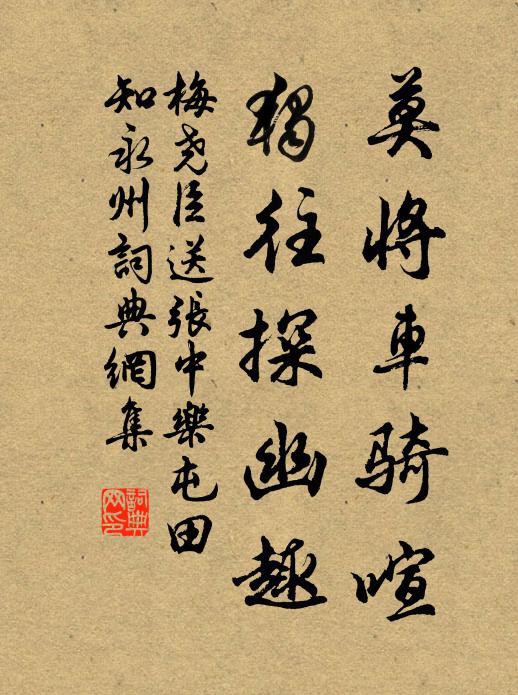 莫將車騎喧
獨往探幽趣
梅堯臣送張中樂屯田
知永州詞典網集
詞典
网印